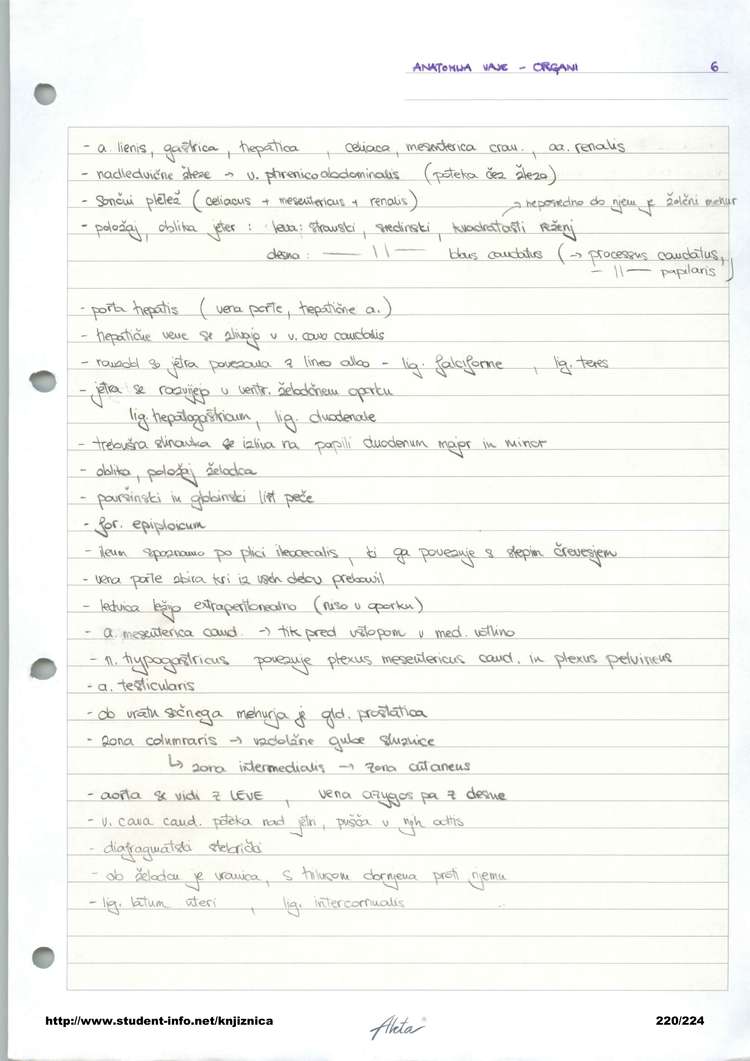 ANATOMIJA VAJE - ORGANI 6
- a. lienis, gastrica, hepatica, celiaca, mesenterica cran., aa. renalis
- nadledvične žleze → v. phrenicoabdominalis (poteka čez žlezo)
- Sončni pletež (celiacus + mesentericus + renalis)
→ neposredno do njem je žolčni mehur
- položaj, oblika jeter: leva: stranski, sredinski, kvadratasti reženj
desna: —— 11 —— lobus caudatus (→ processus caudatus,
— 11 — papilaris)
- porta hepatis (vena porte, hepatične a.)
- hepatične vene se zlivajo v v. cavo caudalis
- navzdol so jetra povezana z lineo albo - lig. falciforme, lig. teres
- jetra se razvijejo v ventr. želodčnem oporku
lig. hepatogastricum, lig. duodenale
- trebušna slinavka se izliva na papili duodenum major in minor
- oblika, položaj želodca
- površinski in globinski list peče
- for. epiploicum
- ileum spoznamo po plici ileocecalis, ki ga povezuje s slepim črevesjem
- vena porte zbira kri iz vseh delov prebavil
- ledvica ležijo extraperitonealno (niso v oporku)
- a. mesenterica caud. → tik pred vstopom v med. votlino
- n. hypogastricus povezuje plexus mesentericus caud. in plexus pelvineus
- a. testicularis
- ob vratu sečnega mehurja je gld. prostatica
- zona columnaris → vzdolžne gube sluznice
↳ zona intermedialis → zona cutaneus
- aorta se vidi z LEVE, vena azygos pa z desne
- v. cava caud. poteka nad jetri, pušča v njih odtis
- diafragmatski stebrički
- ob želodcu je vranica, s hilusom obrnjena proti njemu
- lig. latum uteri, lig. intercornualis
http://www.student-info.net/knjiznica
Aleta
220/224